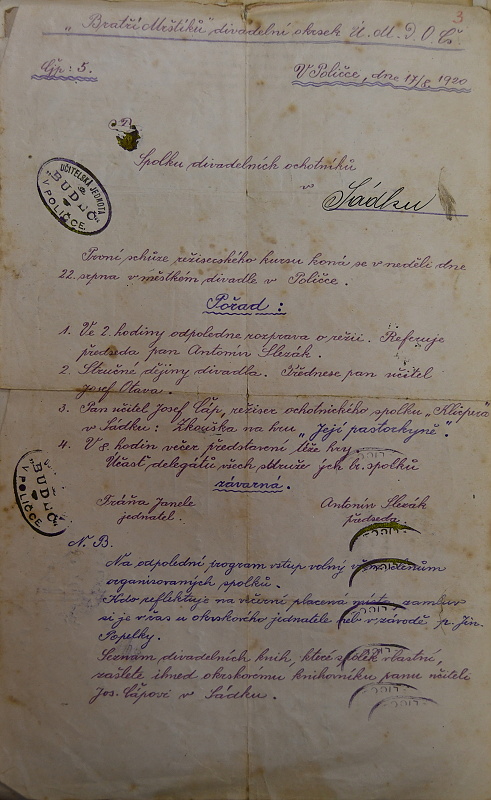 3
"Bratří Mrštíků" divadelní okrsek Ú. M. D. O. Čs.
Čjp: 5. V Poličce, dne 17/8 1920
Spolku divadelních ochotníků
v Sádku
UČITELSKÁ JEDNOTA
"BUDEČ"
V POLIČCE
První schůze režisérského kursu koná se v neděli dne
22. srpna v městkém divadle v Poličce.
Pořad:
1. Ve 2. hodiny odpoledne rozprava o režii. Referuje
předseda pan Antonín Slezák.
2. Stručné dějiny divadla. Přednese pan učitel
Josef Otava.
3. Pan učitel Josef Čáp, režiser ochotnického spolku "Klicpera"
v Sádku: Zkouška na hru "Její pastorkyně".
4. V 8. hodin večer představení téže hry.
Účast delegátů všech sdruže ých br. spolků
závazná.
"BUDEČ"
V POLIČCE
Fráňa Janele Antonín Slezák
jednatel. předseda.
N. B.
Na odpolední program vstup volný všem členům
organisovaných spolků.
Kdo reflektuje na večerní placená místa, zamluv
si je včas u okrskového jednatele neb v závodě p. Jin.
Popelky.
Seznam divadelních knih, které spolek vlastní,
zašlete ihned okrskovému knihovníku panu učiteli
Jos. Čápovi v Sádku.